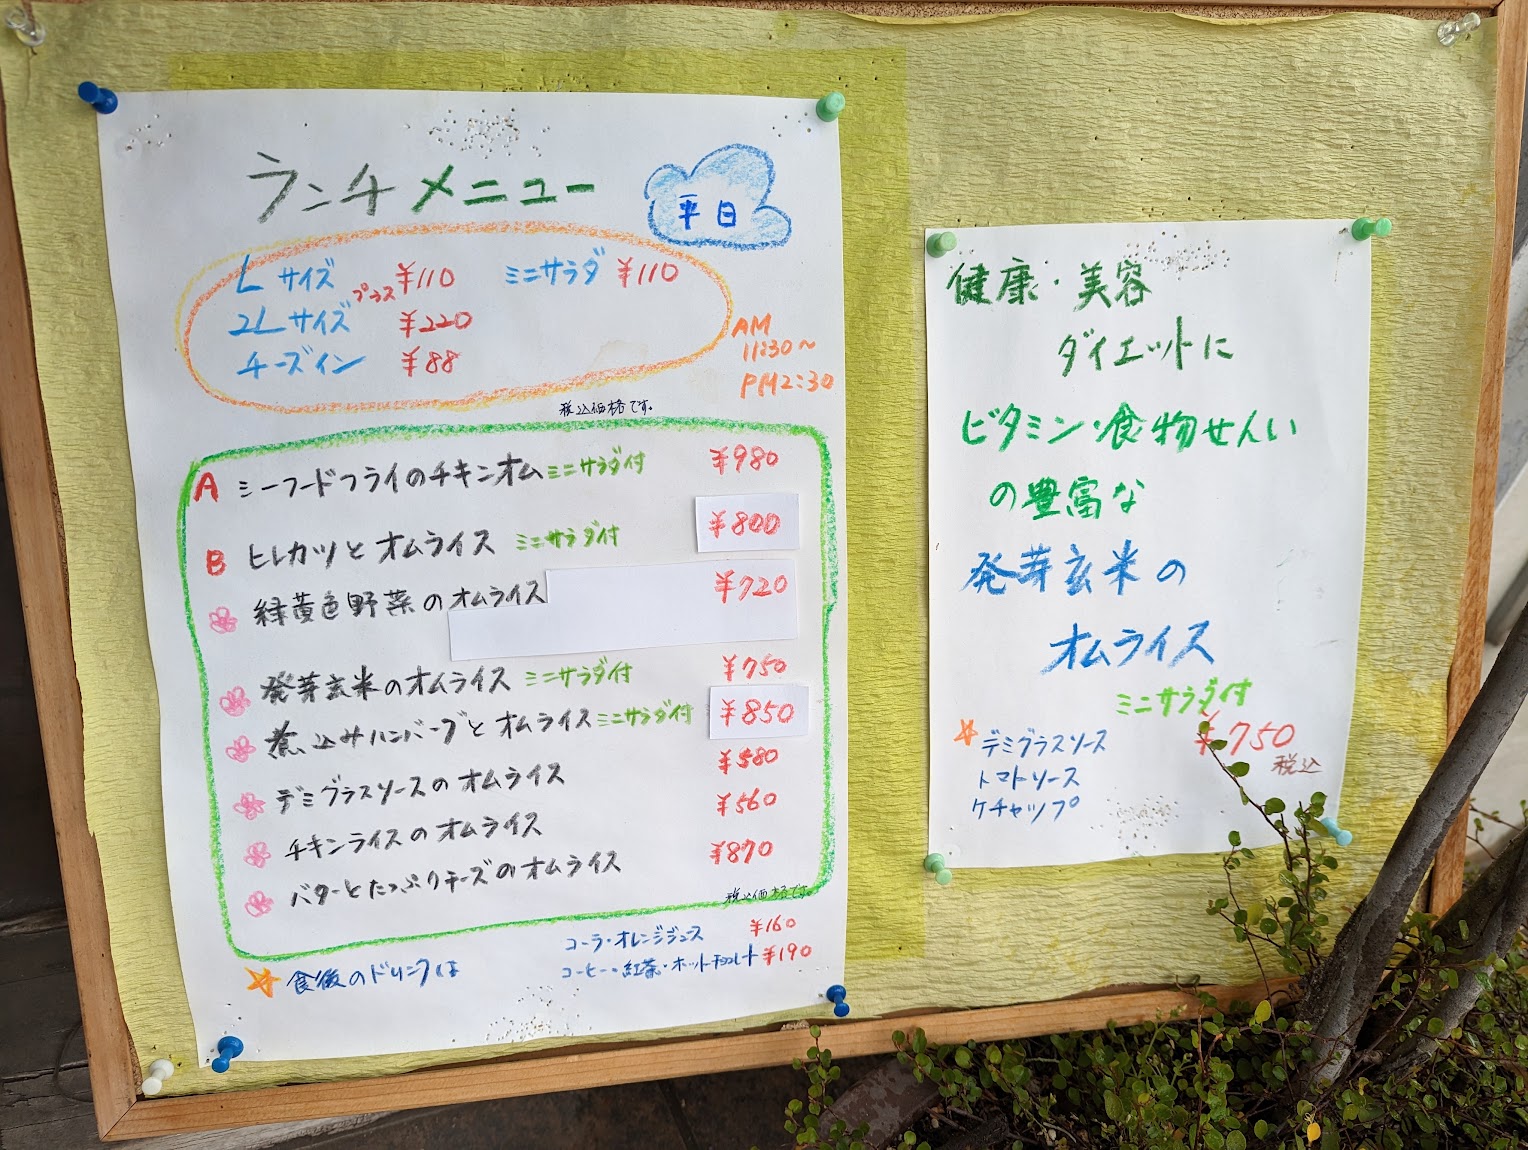 ランチメニュー
平日
Lサイズ プラス ¥110 ミニサラダ ¥110
2Lサイズ ¥220
チーズイン ¥88
AM
11:30〜
PM2:30
税込価格です。
A シーフードフライのチキンオム ミニサラダ付 ¥980
B ヒレカツとオムライス ミニサラダ付 ¥800
緑黄色野菜のオムライス ¥720
発芽玄米のオムライス ミニサラダ付 ¥750
煮込みハンバーグとオムライス ミニサラダ付 ¥850
デミグラスソースのオムライス ¥580
チキンライスのオムライス ¥560
バターとたっぷりチーズのオムライス ¥870
税込価格です。
食後のドリンクは
コーラ・オレンジジュース ¥160
コーヒー・紅茶・ホットチョコレート ¥190
健康・美容
ダイエットに
ビタミン・食物せんい
の豊富な
発芽玄米の
オムライス
ミニサラダ付
¥750
税込
デミグラスソース
トマトソース
ケチャップ